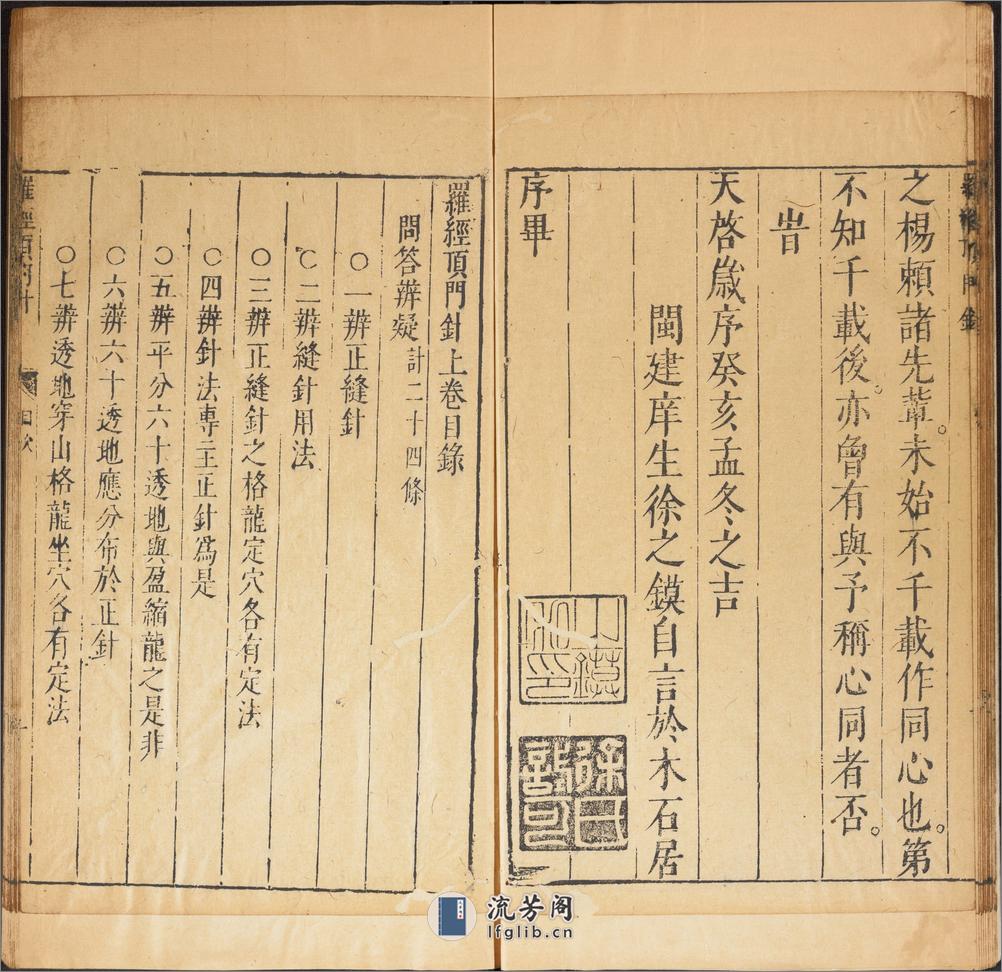 之楊賴諸先輩未始不千載作同心也。第
不知千載後。亦曾有與予稱心同者否。
旹
天啓歲序癸亥孟冬之吉
閩建庠生徐之鏌自言於木石居
序畢
羅經頂門針上卷目錄
問答辨疑計二十四條
○一辨正縫針
○二辨縫針用法
○三辨正縫針之格龍定穴各有定法
○四辨針法專主正針爲是
○五辨平分六十透地與盈縮龍之是非
○六辨六十透地應分布於正針
○七辨透地穿山格龍坐穴各有定法
羅經頂門針
目次
流芳阁
lfglib.cn